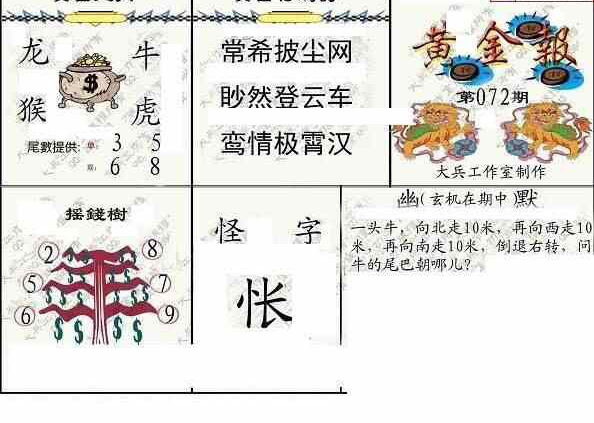 龙 牛
猴 虎
尾數提供: 单: 3 5
双: 6 8
常希披尘网
眇然登云车
鸾情极霄汉
黄金報
第072期
大兵工作室制作
摇錢樹
2 8
5 7
6 9
怪 字
怅
幽(玄机在期中)默
一头牛，向北走10米，再向西走10
米，再向南走10米，倒退右转，问
牛的尾巴朝哪儿?